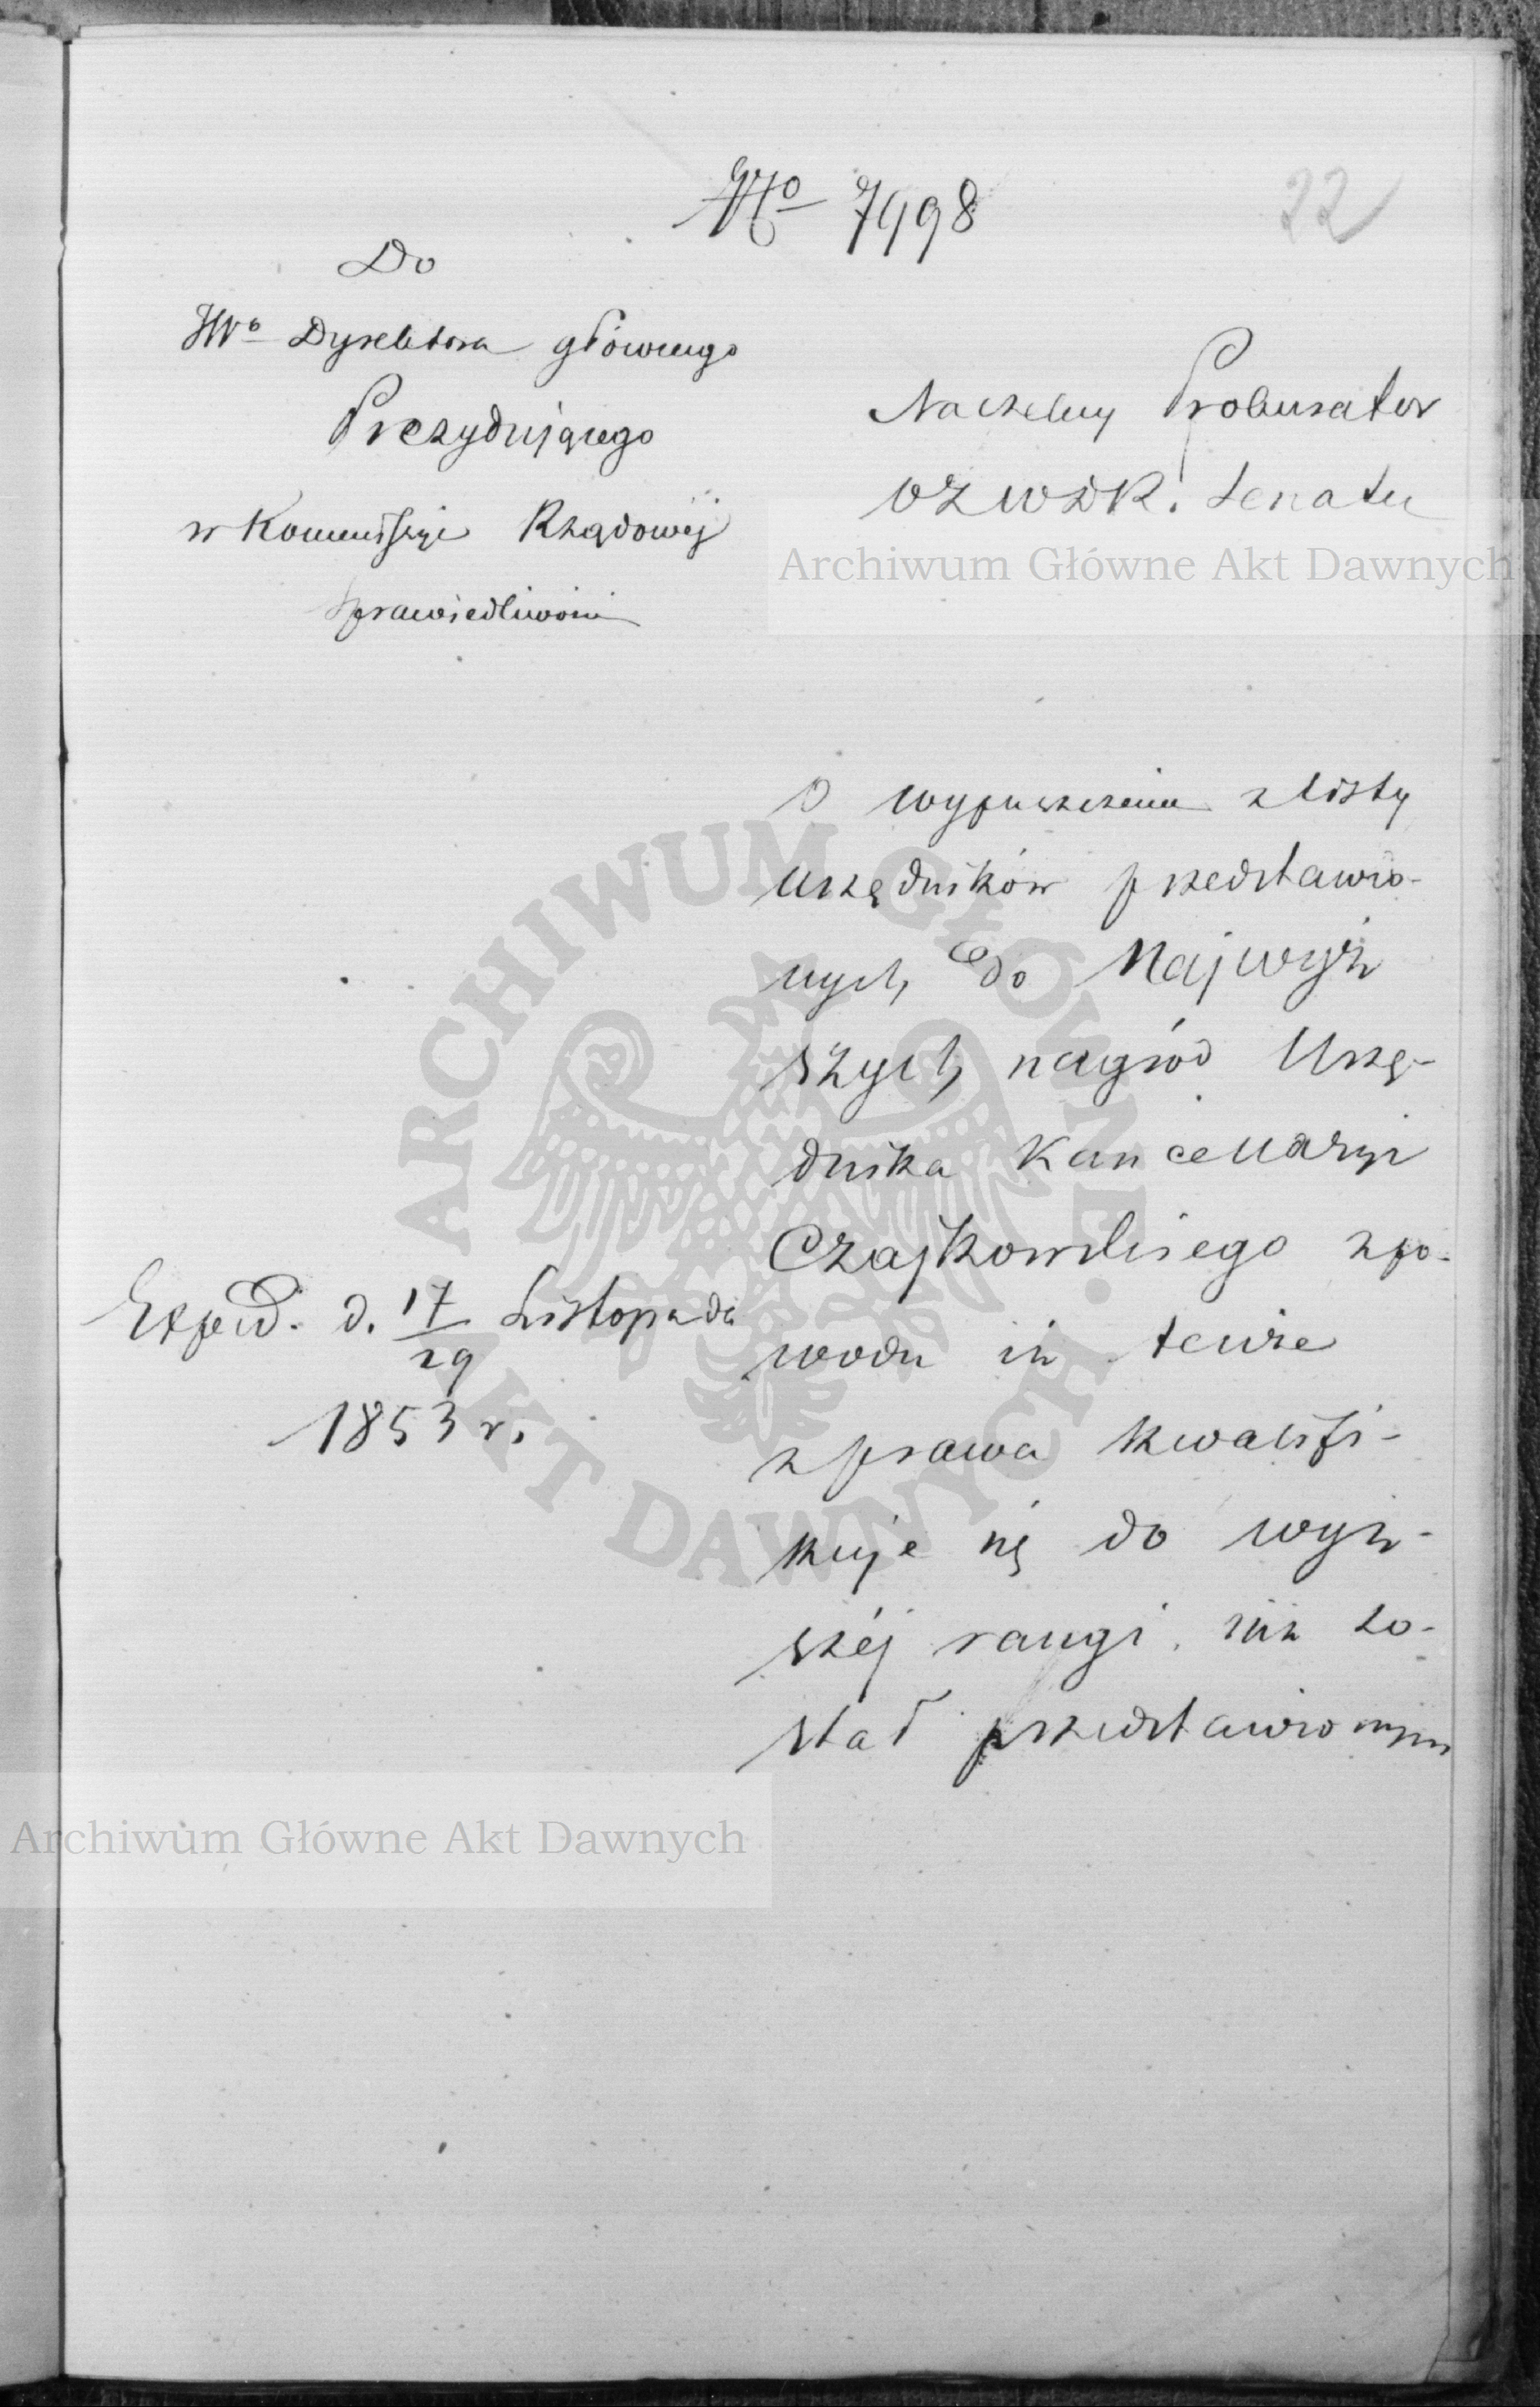 No 7998
22
Do
JWo Dyrektora głównego
Prezydującego
w Kommissyi Rządowéj
Sprawiedliwości
Naczelny Prokurator
Senatu
Archiwum Główne Akt Dawnych
O wypuszczenie z listy
urzędników przedstawio-
nych do Najwyż
szych nagród Urzę-
dnika Kancellaryi
Czajkowskiego z po-
wodu iż tenże
z prawa kwalifi-
kuje się do wyż-
széj rangi, niż zo-
stał przedstawionym
Exped. d. 17/29 Listopada
1853 r.
ARCHIWUM GŁÓWNE AKT DAWNYCH
Archiwum Główne Akt Dawnych